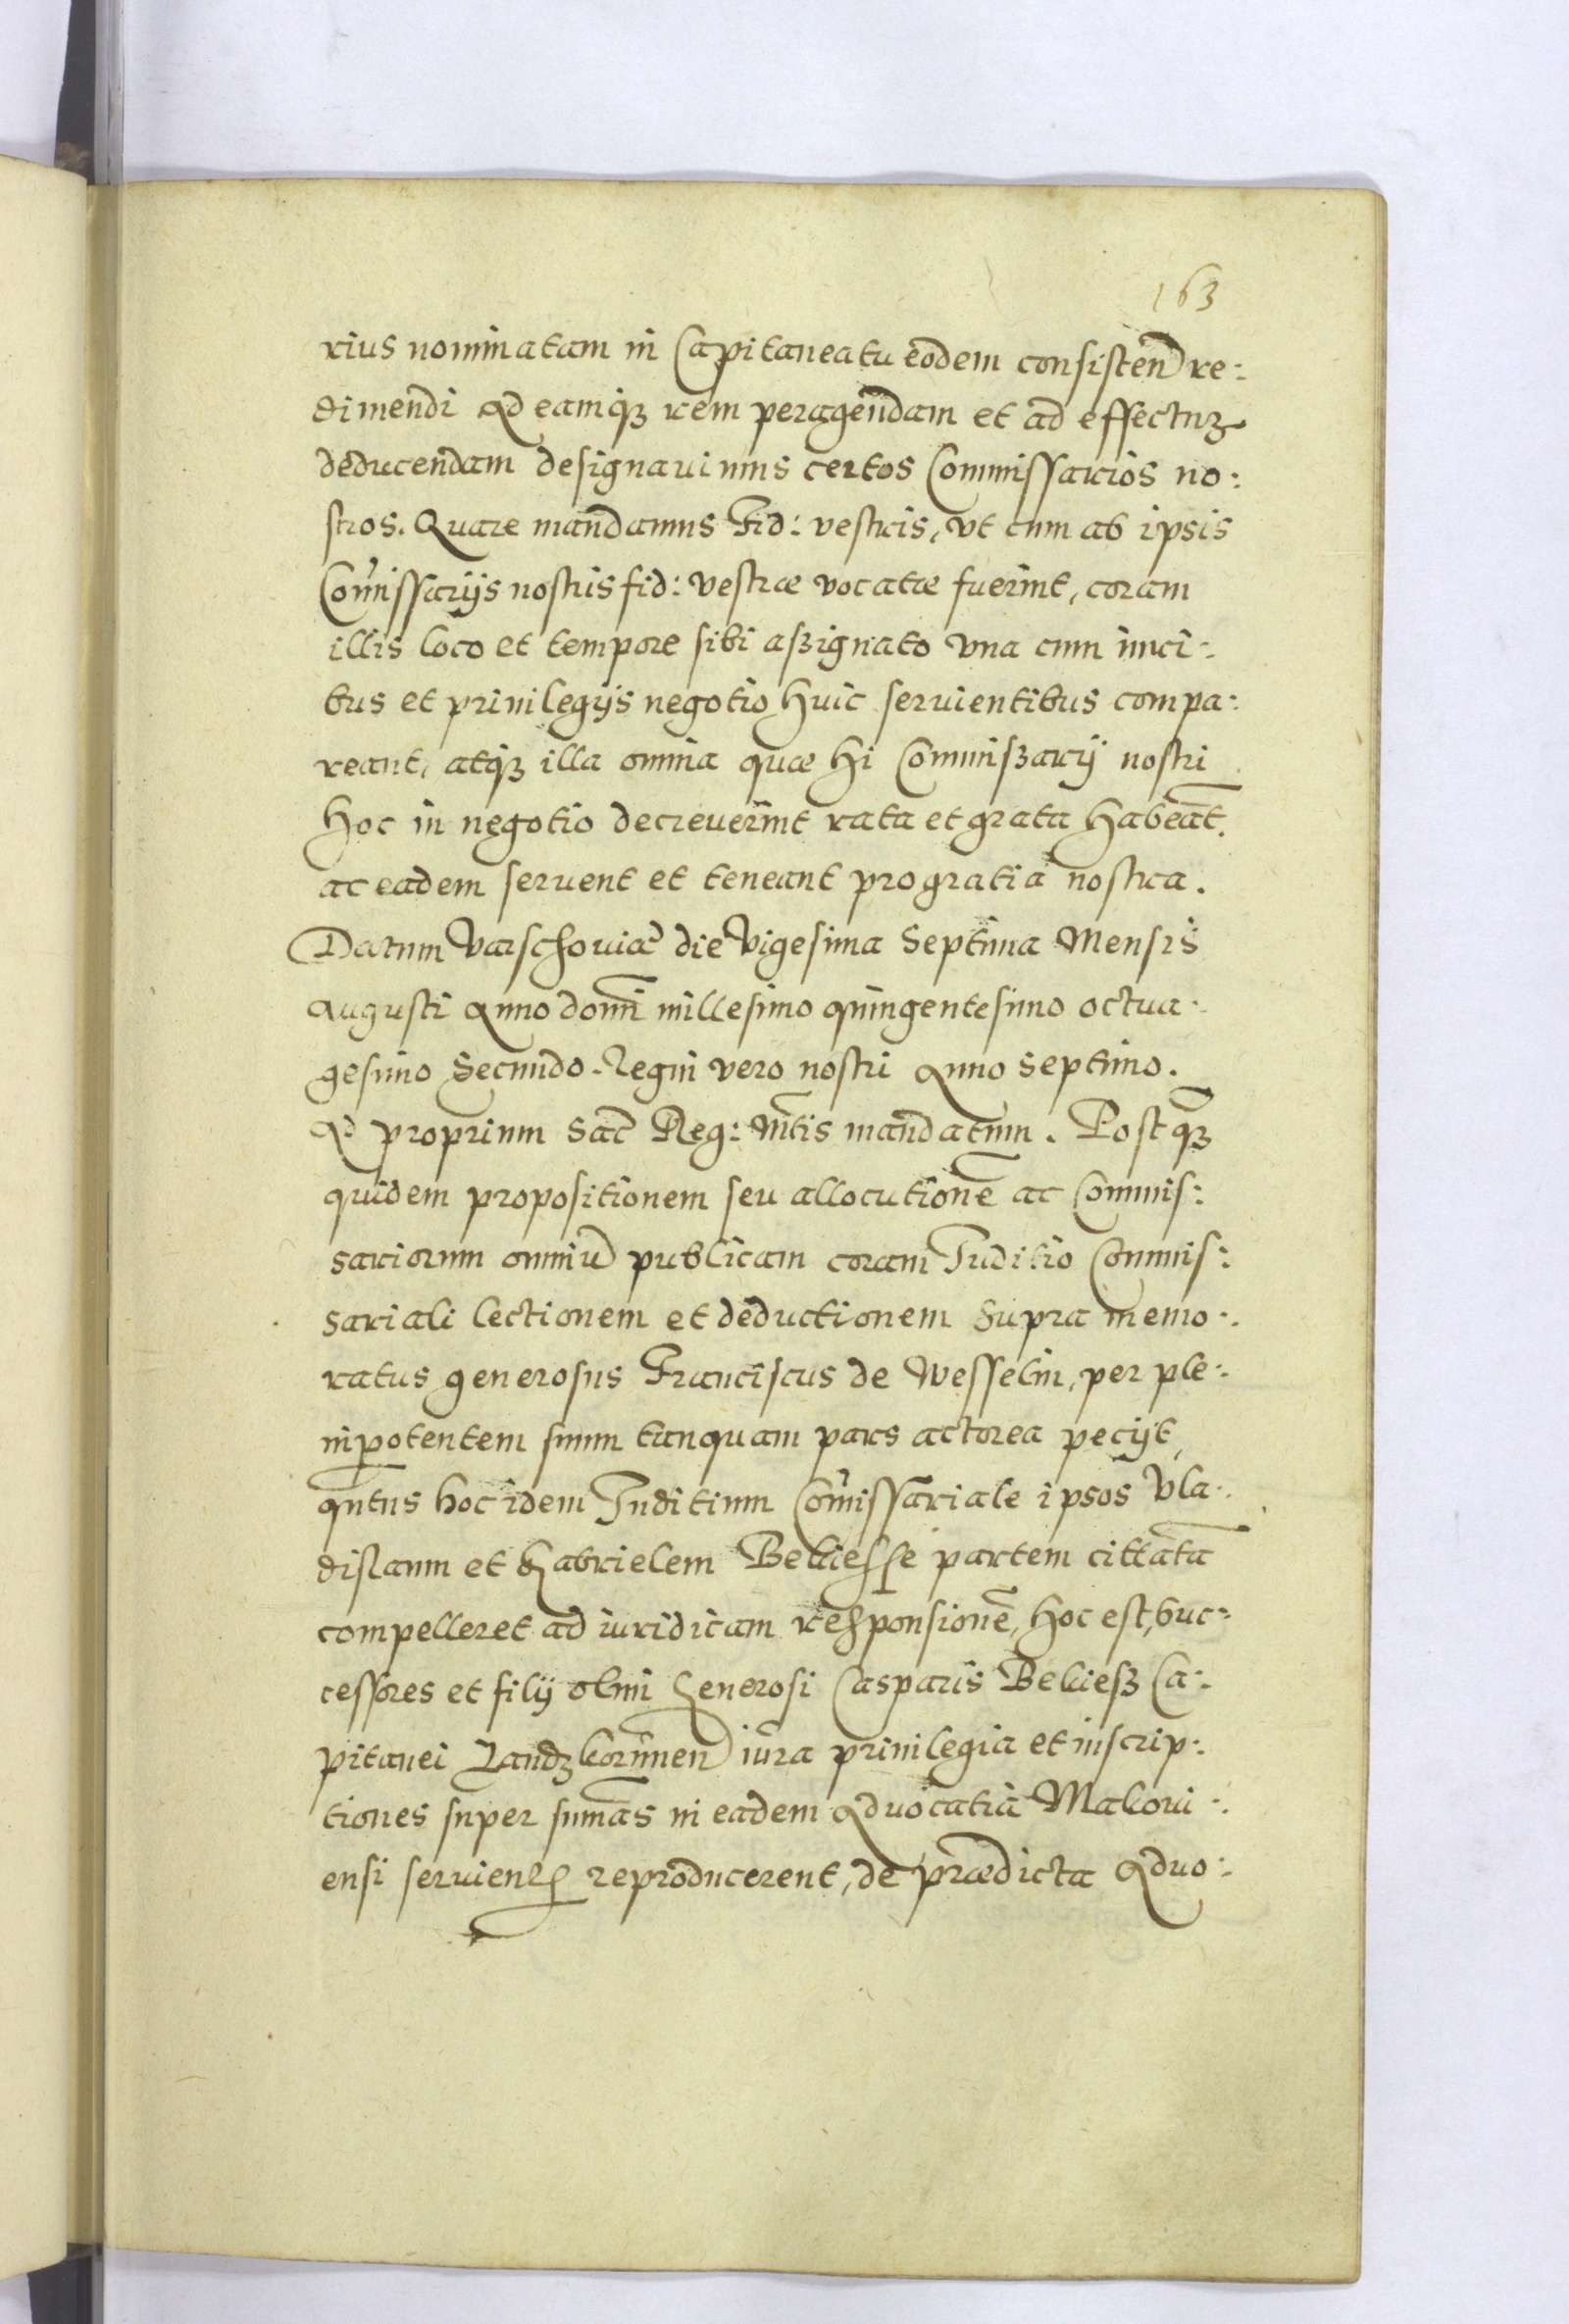 163
rius nominatam in Capitaneatu eodem consistend re:
dimendi Ad eamqꝫ rem peragendam et ad effectuꝫ
deducendam designauimus certos Commissarios no:
stros. Quare mandamus Fid: vestris, vt cum ab ipsis
Com̃issarijs nostris fid: vestræ vocatæ fuerint, coram
illis loco et tempore sibi aßignato vna cum iuri:
bus et priuilegijs negotio huic seruientibus compa:
reant, atqꝫ illa omnia quæ hi Commißarij nostri
hoc in negotio decreuerint rata et grata habeat̃.
ac eadem seruent et teneant pro gratia nostra.
Datum Varschouiæ die Vigesima Septima Mensis
Augusti Anno domi millesimo quingentesimo octua:
gesimo Secundo. Regni vero nostri Anno septimo.
Ad proprium Sac̃ Reg: M̃tis mandatum. Post qꝫ
quidem propositionem seu allocutionẽ ac Commis:
sariorum omniũ publicam coram Juditio Commis:
sariali lectionem et deductionem supra memo:
ratus generosus Franciscus de Wesselin, per ple:
nipotentem suum tanquam pars actorea pecijt,
qñtus hoc idem Juditium Com̃issariale ipsos Vla:
dislaum et Gabrielem Bekiesse partem cittatã
compelleret ad iuridicam responsionẽ, hoc est, suc:
cessores et filij olim Generosi Casparis Bekieß Ca:
pitanei Landzkorunen iura priuilegia et inscrip:
tiones super sum̃as in eadem Aduocatia Makoui:
ensi seruien̄ reproducerent, de prædicta Aduo: